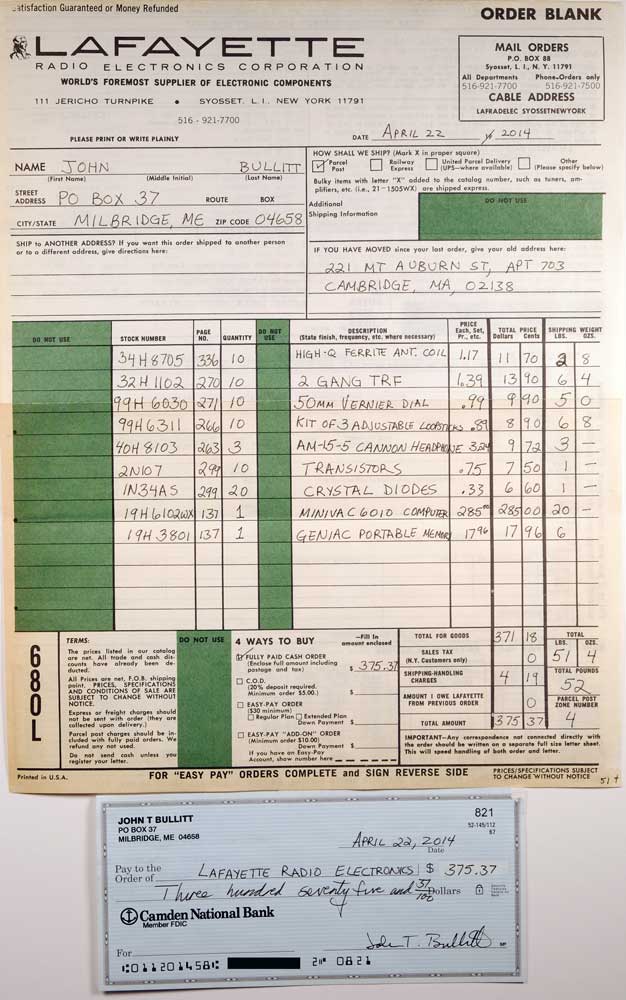 Satisfaction Guaranteed or Money Refunded
ORDER BLANK
LAFAYETTE
RADIO ELECTRONICS CORPORATION
WORLD'S FOREMOST SUPPLIER OF ELECTRONIC COMPONENTS
111 JERICHO TURNPIKE • SYOSSET, L. I., NEW YORK 11791
516 - 921-7700
MAIL ORDERS
P.O. BOX 88
Syosset, L. I., N. Y. 11791
All Departments Phone-Orders only
516-921-7700 516-921-7500
CABLE ADDRESS
LAFRADELEC SYOSSETNEWYORK
PLEASE PRINT OR WRITE PLAINLY
DATE APRIL 22 2014
NAME JOHN BULLITT
(First Name) (Middle Initial) (Last Name)
STREET ADDRESS PO BOX 37 ROUTE BOX
CITY/STATE MILBRIDGE, ME ZIP CODE 04658
HOW SHALL WE SHIP? (Mark X in proper square)
Parcel Post Railway Express United Parcel Delivery (UPS—where available) Other (Please specify below)
Bulky items with letter "X" added to the catalog number, such as tuners, amplifiers, etc. (i.e., 21-1505WX) are shipped express.
Additional Shipping Information
DO NOT USE
SHIP to ANOTHER ADDRESS? If you want this order shipped to another person
or to a different address, give directions here:
IF YOU HAVE MOVED since your last order, give your old address here:
221 MT AUBURN ST, APT 703
CAMBRIDGE, MA 02138
DO NOT USE STOCK NUMBER PAGE NO. QUANTITY DO NOT USE DESCRIPTION (State finish, frequency, etc. where necessary) PRICE Each, Set, Pr., etc. TOTAL PRICE Dollars Cents SHIPPING WEIGHT LBS. OZS.
34H8705 336 10 HIGH-Q FERRITE ANT. COIL 1.17 11 70 2 8
32H1102 270 10 2 GANG TRF 1.39 13 90 6 4
99H6030 271 10 50MM VERNIER DIAL .99 9 90 5 0
99H6311 266 10 KIT OF 3 ADJUSTABLE LOOPSTICKS .89 8 90 6 8
40H8103 263 3 AM-15-5 CANNON HEADPHONE 3.24 9 72 3 —
2N107 299 10 TRANSISTORS .75 7 50 1 —
1N34AS 299 20 CRYSTAL DIODES .33 6 60 1 —
19H6102WX 137 1 MINIVAC 6010 COMPUTER 285.00 285 00 20 —
19H3801 137 1 GENIAC PORTABLE MEMORY 17.96 17 96 6
680L
TERMS:
The prices listed in our catalog
are net. All trade and cash discounts
have already been deducted.
All Prices are net, F.O.B. shipping
point. PRICES, SPECIFICATIONS
AND CONDITIONS OF SALE ARE
SUBJECT TO CHANGE WITHOUT
NOTICE.
Express or freight charges should
not be sent with order (they are
collected upon delivery.)
Parcel post charges should be included
with fully paid orders. We
refund any not used.
Do not send cash unless you
register your letter.
DO NOT USE
4 WAYS TO BUY —Fill In amount enclosed
FULLY PAID CASH ORDER
(Enclose full amount including
postage and tax) $ 375.37
C.O.D.
(20% deposit required.
Minimum order $5.00.) $
EASY-PAY ORDER
($30 minimum)
Regular Plan Extended Plan
Down Payment $
EASY-PAY "ADD-ON" ORDER
(Minimum order $10.00)
Down Payment $
If you have an Easy-Pay
Account, show number here
TOTAL FOR GOODS 371 18
SALES TAX (N.Y. Customers only) 0
SHIPPING-HANDLING CHARGES 4 19
AMOUNT I OWE LAFAYETTE FROM PREVIOUS ORDER 0
TOTAL AMOUNT 375 37
TOTAL
LBS. OZS.
51 4
TOTAL POUNDS
52
PARCEL POST ZONE NUMBER
4
IMPORTANT—Any correspondence not connected directly with
the order should be written on a separate full size letter sheet.
This will speed handling of both order and letter.
Printed in U.S.A.
FOR "EASY PAY" ORDERS COMPLETE and SIGN REVERSE SIDE
PRICES/SPECIFICATIONS SUBJECT
TO CHANGE WITHOUT NOTICE
JOHN T BULLITT
PO BOX 37
MILBRIDGE, ME 04658
821
52-145/112
67
APRIL 22, 2014
Date
Pay to the
Order of LAFAYETTE RADIO ELECTRONICS $ 375.37
Three hundred seventy five and 37/100 Dollars
Camden National Bank
Member FDIC
For
John T. Bullitt
MP
⑆011201458⑆ 2⑈ 0821